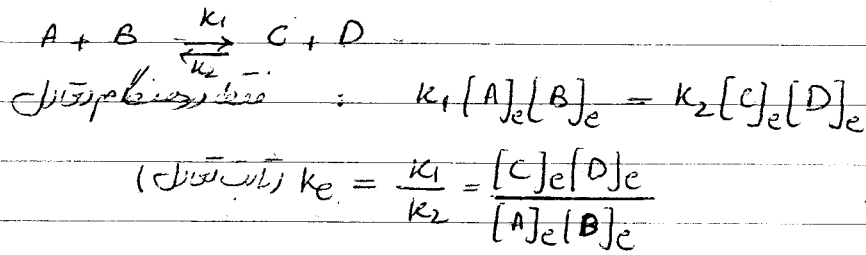 A + B ⇌ C + D
K1
K2
فقط در هنگام تعادل : K1[A]e[B]e = K2[C]e[D]e
(ثابت تعادل) Ke = K1/K2 = [C]e[D]e/[A]e[B]e